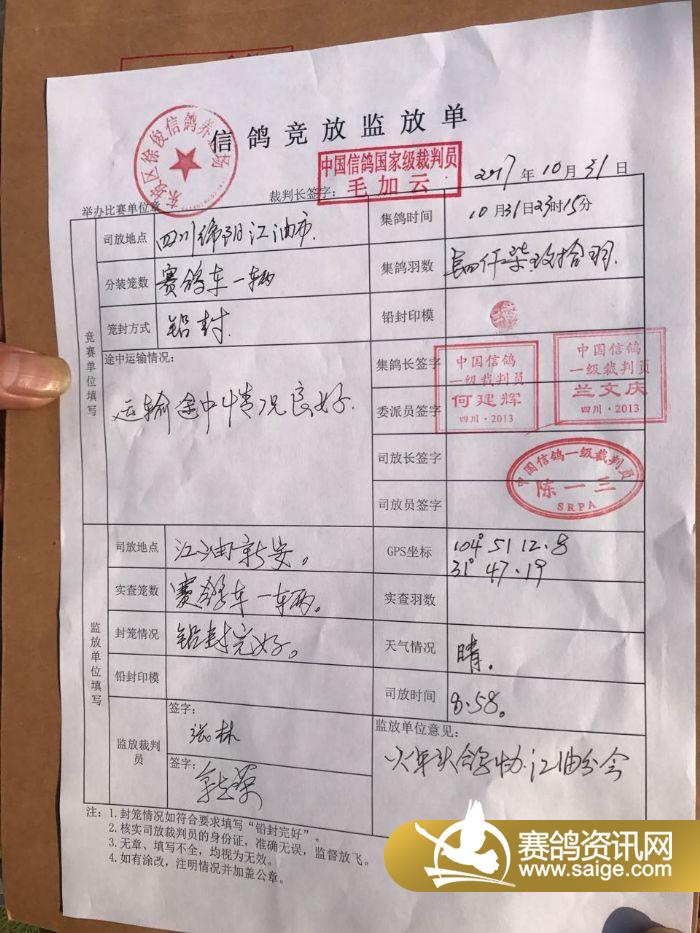 信鸽竞放监放单
东坡区徐俊信鸽养殖场
中国信鸽国家级裁判员
毛加云
2017年10月31日
举办比赛单位章
裁判长签字:
竞赛单位填写
司放地点 四川绵阳江油市. 集鸽时间 10月31日23时15分
分装笼数 赛鸽车一辆 集鸽羽数 仟柒 拾羽.
笼封方式 铅封. 铅封印模
途中运输情况: 集鸽长签字
运输途中情况良好. 委派员签字
中国信鸽
一级裁判员
何建辉
四川·2013
中国信鸽
一级裁判员
兰文庆
四川·2013
司放长签字
中国信鸽一级裁判员
陈一三
SRPA
司放员签字
监放单位填写
司放地点 江油新安。 GPS坐标 104°51 12.8
31°47.19
实查笼数 赛鸽车一车辆。 实查羽数
封笼情况 铅封完好。 天气情况 晴.
铅封印模 司放时间 8:58。
监放裁判员 签字: 张林 监放单位意见:
鸽协.江油分会
签字:
注:1.封笼情况如符合要求填写“铅封完好”。
2.核实司放裁判员的身份证,准确无误,监督放飞。
3.无章、填写不全,均视为无效。
4.如有涂改,注明情况并加盖公章。
赛鸽资讯网
www.saige.com